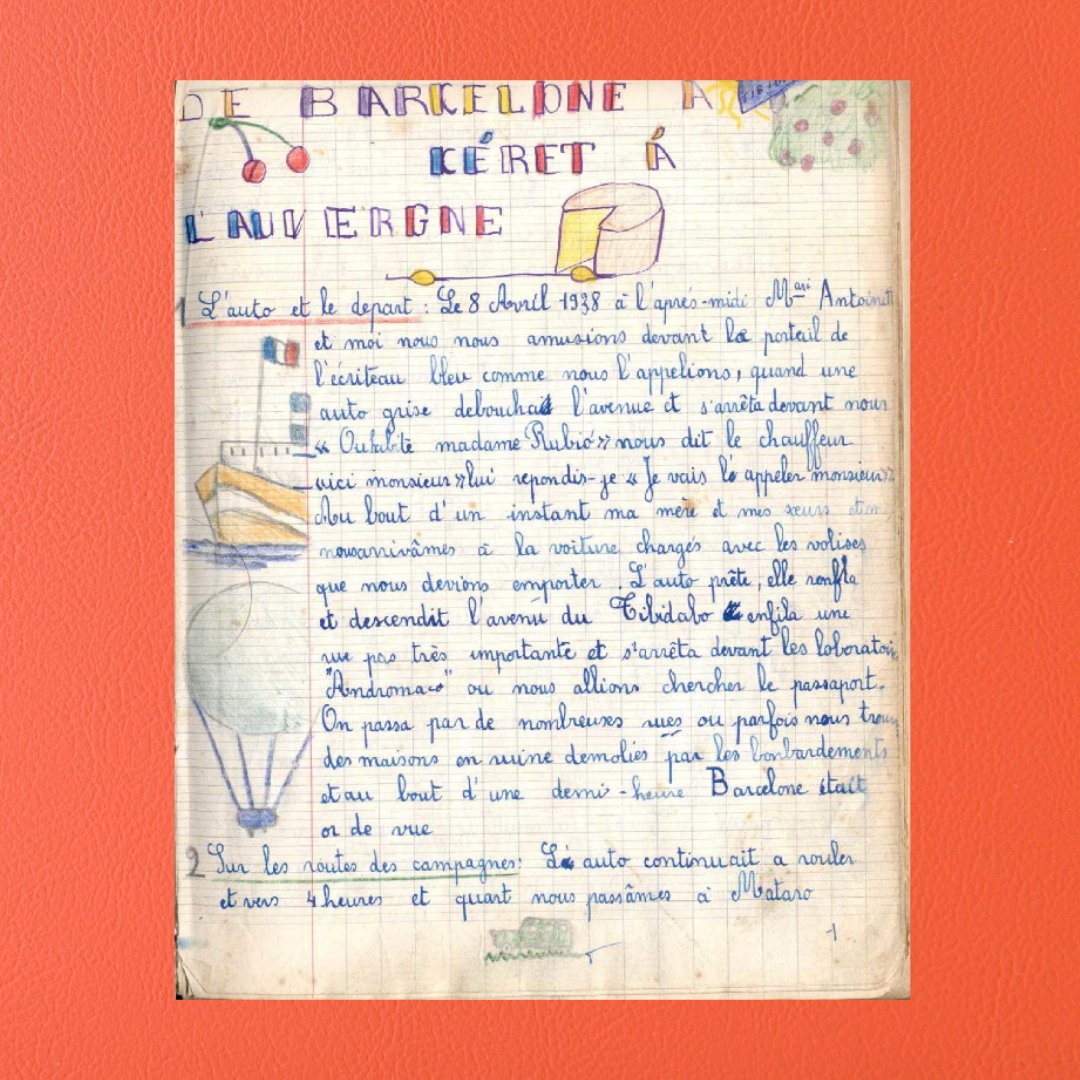 DE BARCELONE A
KÉRET Á
L'AUVERGNE
1 L'auto et le depart : Le 8 Avril 1938 à l'aprés-midi Mari Antoinett
et moi nous nous amusions devant la porteil de
l'écriteau bleu comme nous l'appelions, quand une
auto grise debouchad l'avenue et s'arrêta devant nous
« Ou habite madame Rubió » nous dit le chauffeur
« ici monsieur » lui repondis-je « Je vais lé appeler monsieur ».
Au bout d'un instant ma mère et mes sœurs et
nousarrivâmes à la voiture chargés avec les valises
que nous devions emporter. L'auto prête, elle ronfla
et descendit l'avenu du Tibidabo enfila une
rue pas très importante et s'arrêta devant les laboratoir
"Andromaco" ou nous allions chercher le passaport.
On passa par de nombreuses rues ou parfois nous trouv
des maisons en ruine demolies par les bonbardements
et au bout d'une demi-heure Barcelone était
or de vue
2 Sur les routes des campagnes: L'auto continuait a rouler
et vers 4 heures et quart nous passâmes à Mataro
1